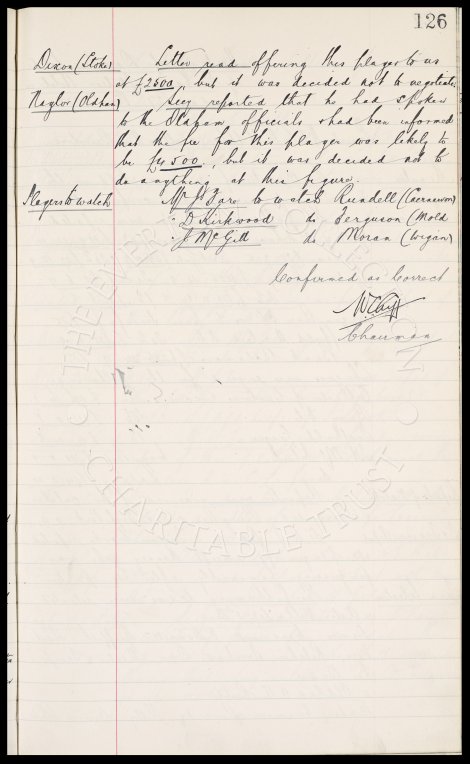 126
Dixon (Stoke) Letter read offering this player to us
at £2500, but it was decided not to negotiate.
Naylor (Oldham) Secy reported that he had spoken
to the Oldham officials & had been informed
that the fee for this player was likely to
be £4500, but it was decided not to
do anything at this figure.
Players to watch Mr J. Fare to watch Rundell (Caernarvon)
" D Kirkwood do Ferguson (Mold
" J McGill do Moran (Wigan)
Confirmed as Correct
W.C. Cuff
Chairman
THE EVERTON COLLECTION
CHARITABLE TRUST